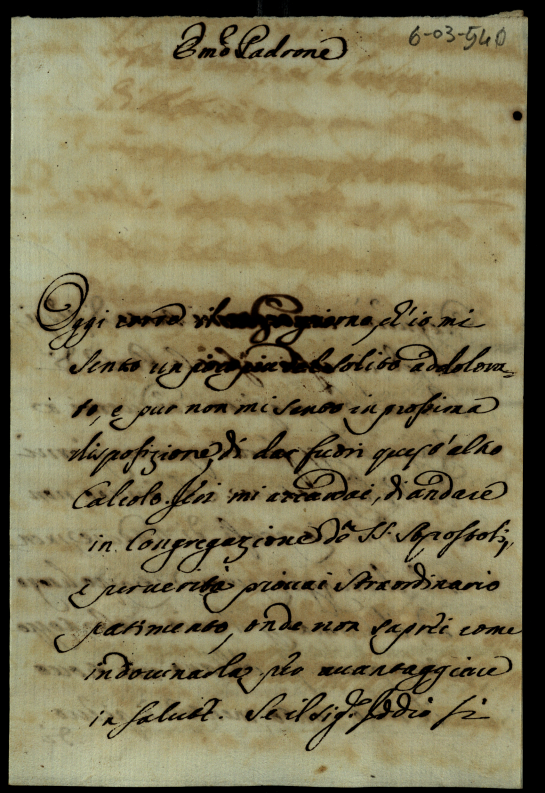 6-03-540
Em.o Padrone
Oggi corre il giorno, ch'io mi
sento un poco più del solito addolora-
to, e pur non mi sento in prossima
disposizione di dar fuori quest'altro
Calcolo. Ieri mi azzardai, di andare
in Congregazione de SS. Apostoli,
e per verità provai straordinario
patimento, onde non saprei come
indovinarla per avantaggiare
in salute. Se il Sig.r Iddio si